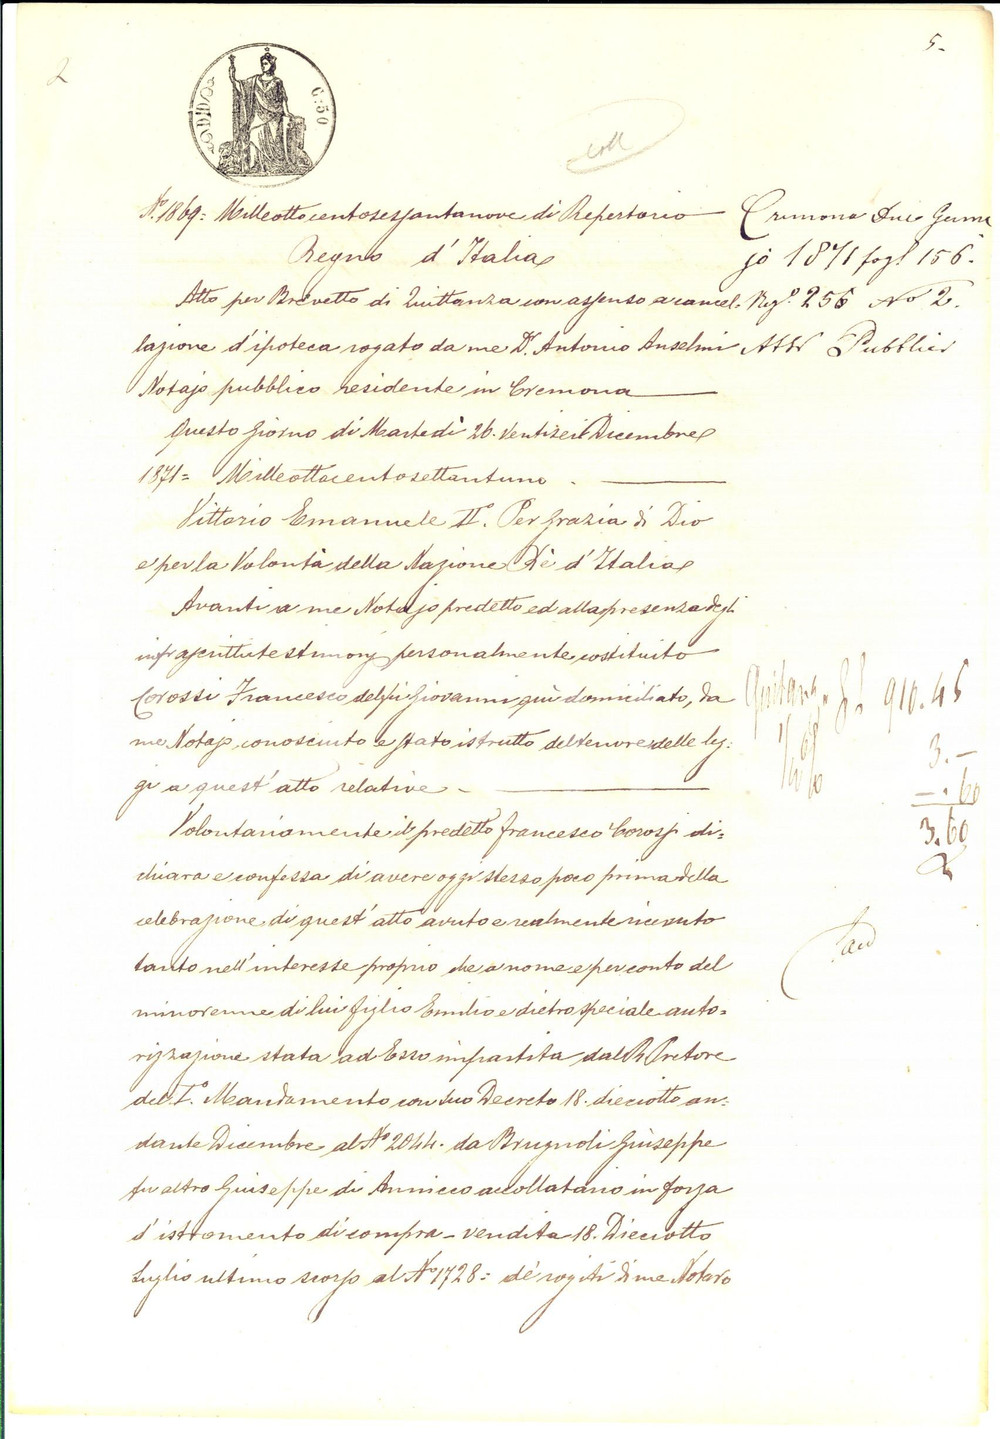 2
5.
C. 50
coll
N.° 1869 = Milleottocentosessantanove di Repertorio
Regno d'Italia
Atto per Brevetto di Quittanza con assenso a cancel-
lazione d'ipoteca rogato da me D.r Antonio Anselmi
Notajo pubblico residente in Cremona
Questo Giorno di Martedì 26. Ventisei Dicembre
1871 = Milleottocentosettantuno.
Vittorio Emanuele II.° Per Grazia di Dio
e per la Volontà della Nazione Rè d'Italia
Avanti a me Notajo predetto ed alla presenza degli
infrascritti testimonj personalmente costituito
Corossi Francesco del fu Giovanni quì domiciliato, da
me Notajo conosciuto e stato istrutto del tenore delle leg-
gi a quest'atto relative -
Volontariamente il predetto Francesco Corossi di=
chiara e confessa di avere oggi stesso poco prima della
celebrazione di quest'atto avuto e realmente ricevuto
tanto nell'interesse proprio che a nome e per conto del
minorenne di lui figlio Emilio e dietro speciale auto=
rizzazione stata ad Esso impartita dal R. Pretore
del I.° Mandamento con suo Decreto 18. dieciotto an=
dante Dicembre al N.° 2044. da Brugnoli Giuseppe
fu altro Giuseppe di Annicco accollatario in forza
d'istromento di compra-vendita 18. Dieciotto
Luglio ultimo scorso al N.° 1728 = de' rogiti di me Notaro
Cremona due Genna
jo 1871 fogl. 156.
Reg.° 256 N.° 2.
Atti Pubblici
Quitanza 910.45
3.-
-.60
3.60